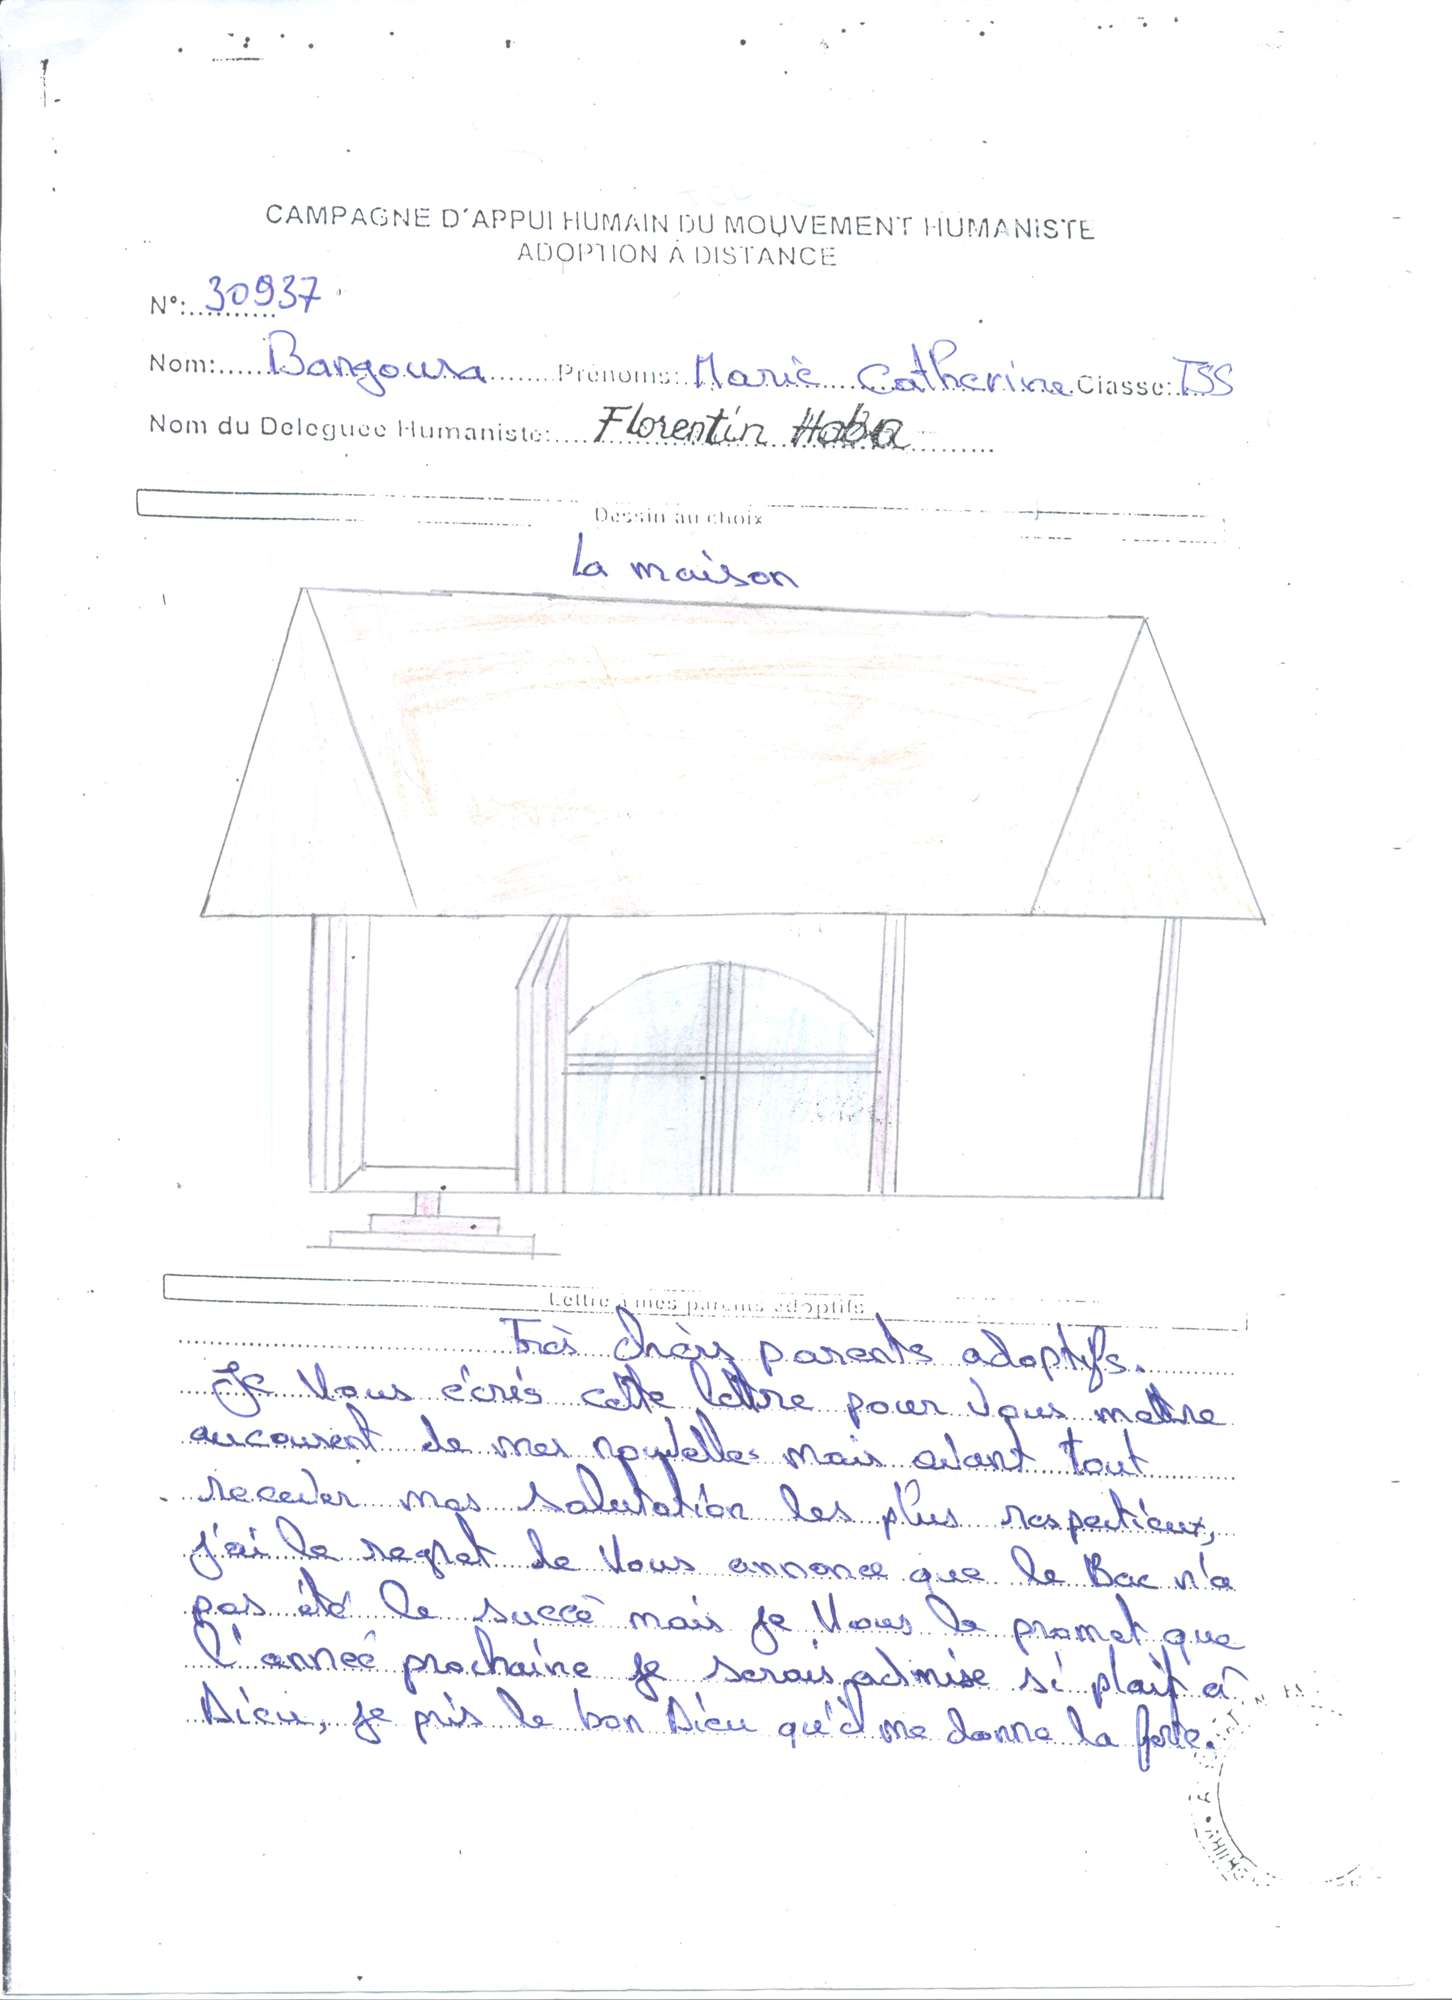 CAMPAGNE D'APPUI HUMAIN DU MOUVEMENT HUMANISTE
ADOPTION A DISTANCE
N°: 30937
Nom: Bangoura Prénoms: Marie Catherine Classe: TSS
Nom du Deleguee Humaniste: Florentin Haba
Dessin au choix
La maison
Lettre à mes parents adoptifs
Très chèrs parents adoptifs.
Je vous écrés cette lettre pour vous mettre
aucourent de mes nouvelles mais avant tout
recever mes salutation les plus respectieux,
j'ai le regret de vous annonce que le Bac n'a
pas été le succè mais je vous le promet que
l'année prochaine je serais admise si plait à
Dieu, je pris le bon Dieu qu'il me donne la force.